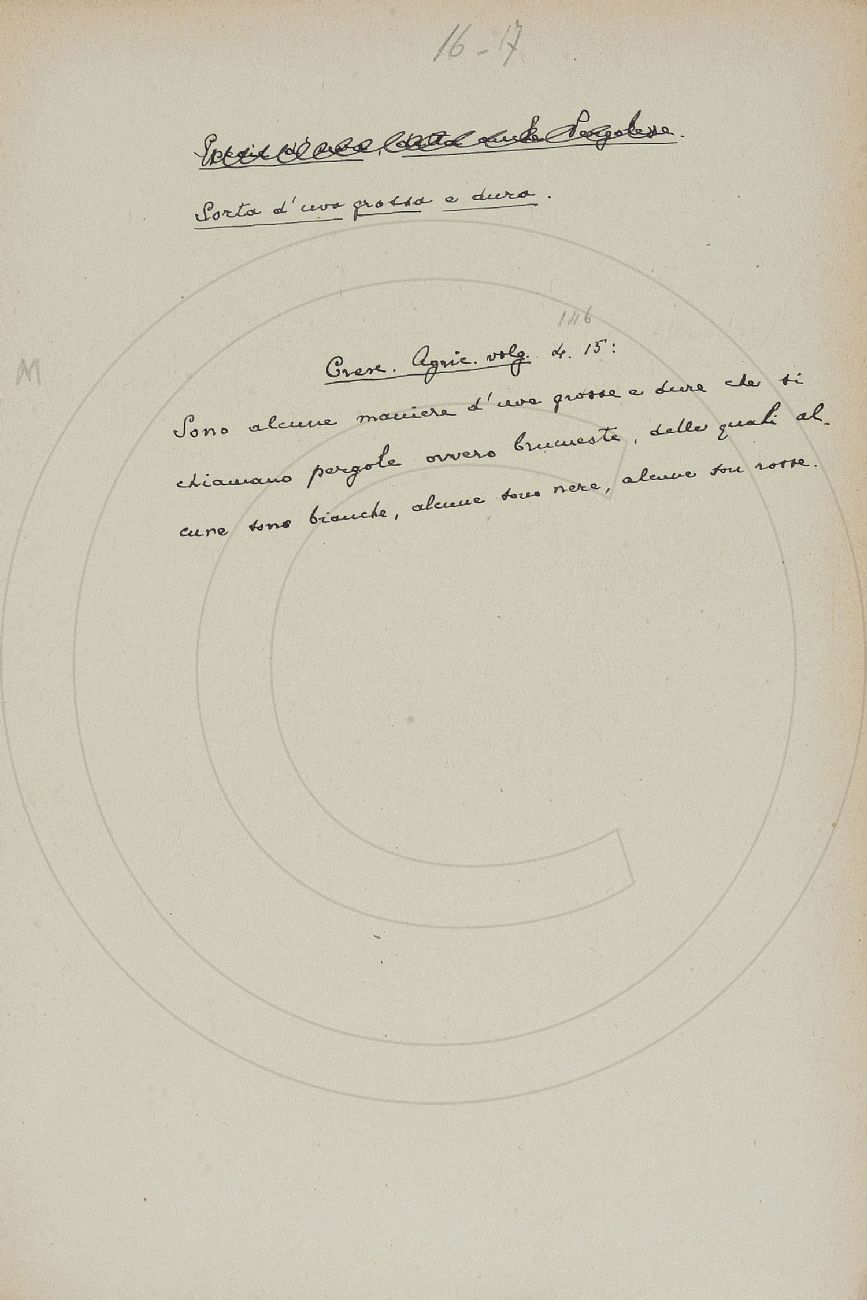 16-17
Specie d'uva, detta anche Pergolese.
Sorta d'uva grossa e dura.
146
M
Cresc. Agric. volg. 4. 15:
Sono alcune maniere d'uve grosse e dure che si
chiamano pergole ovvero brumeste, delle quali al-
cune sono bianche, alcune sono nere, alcune son rosse.